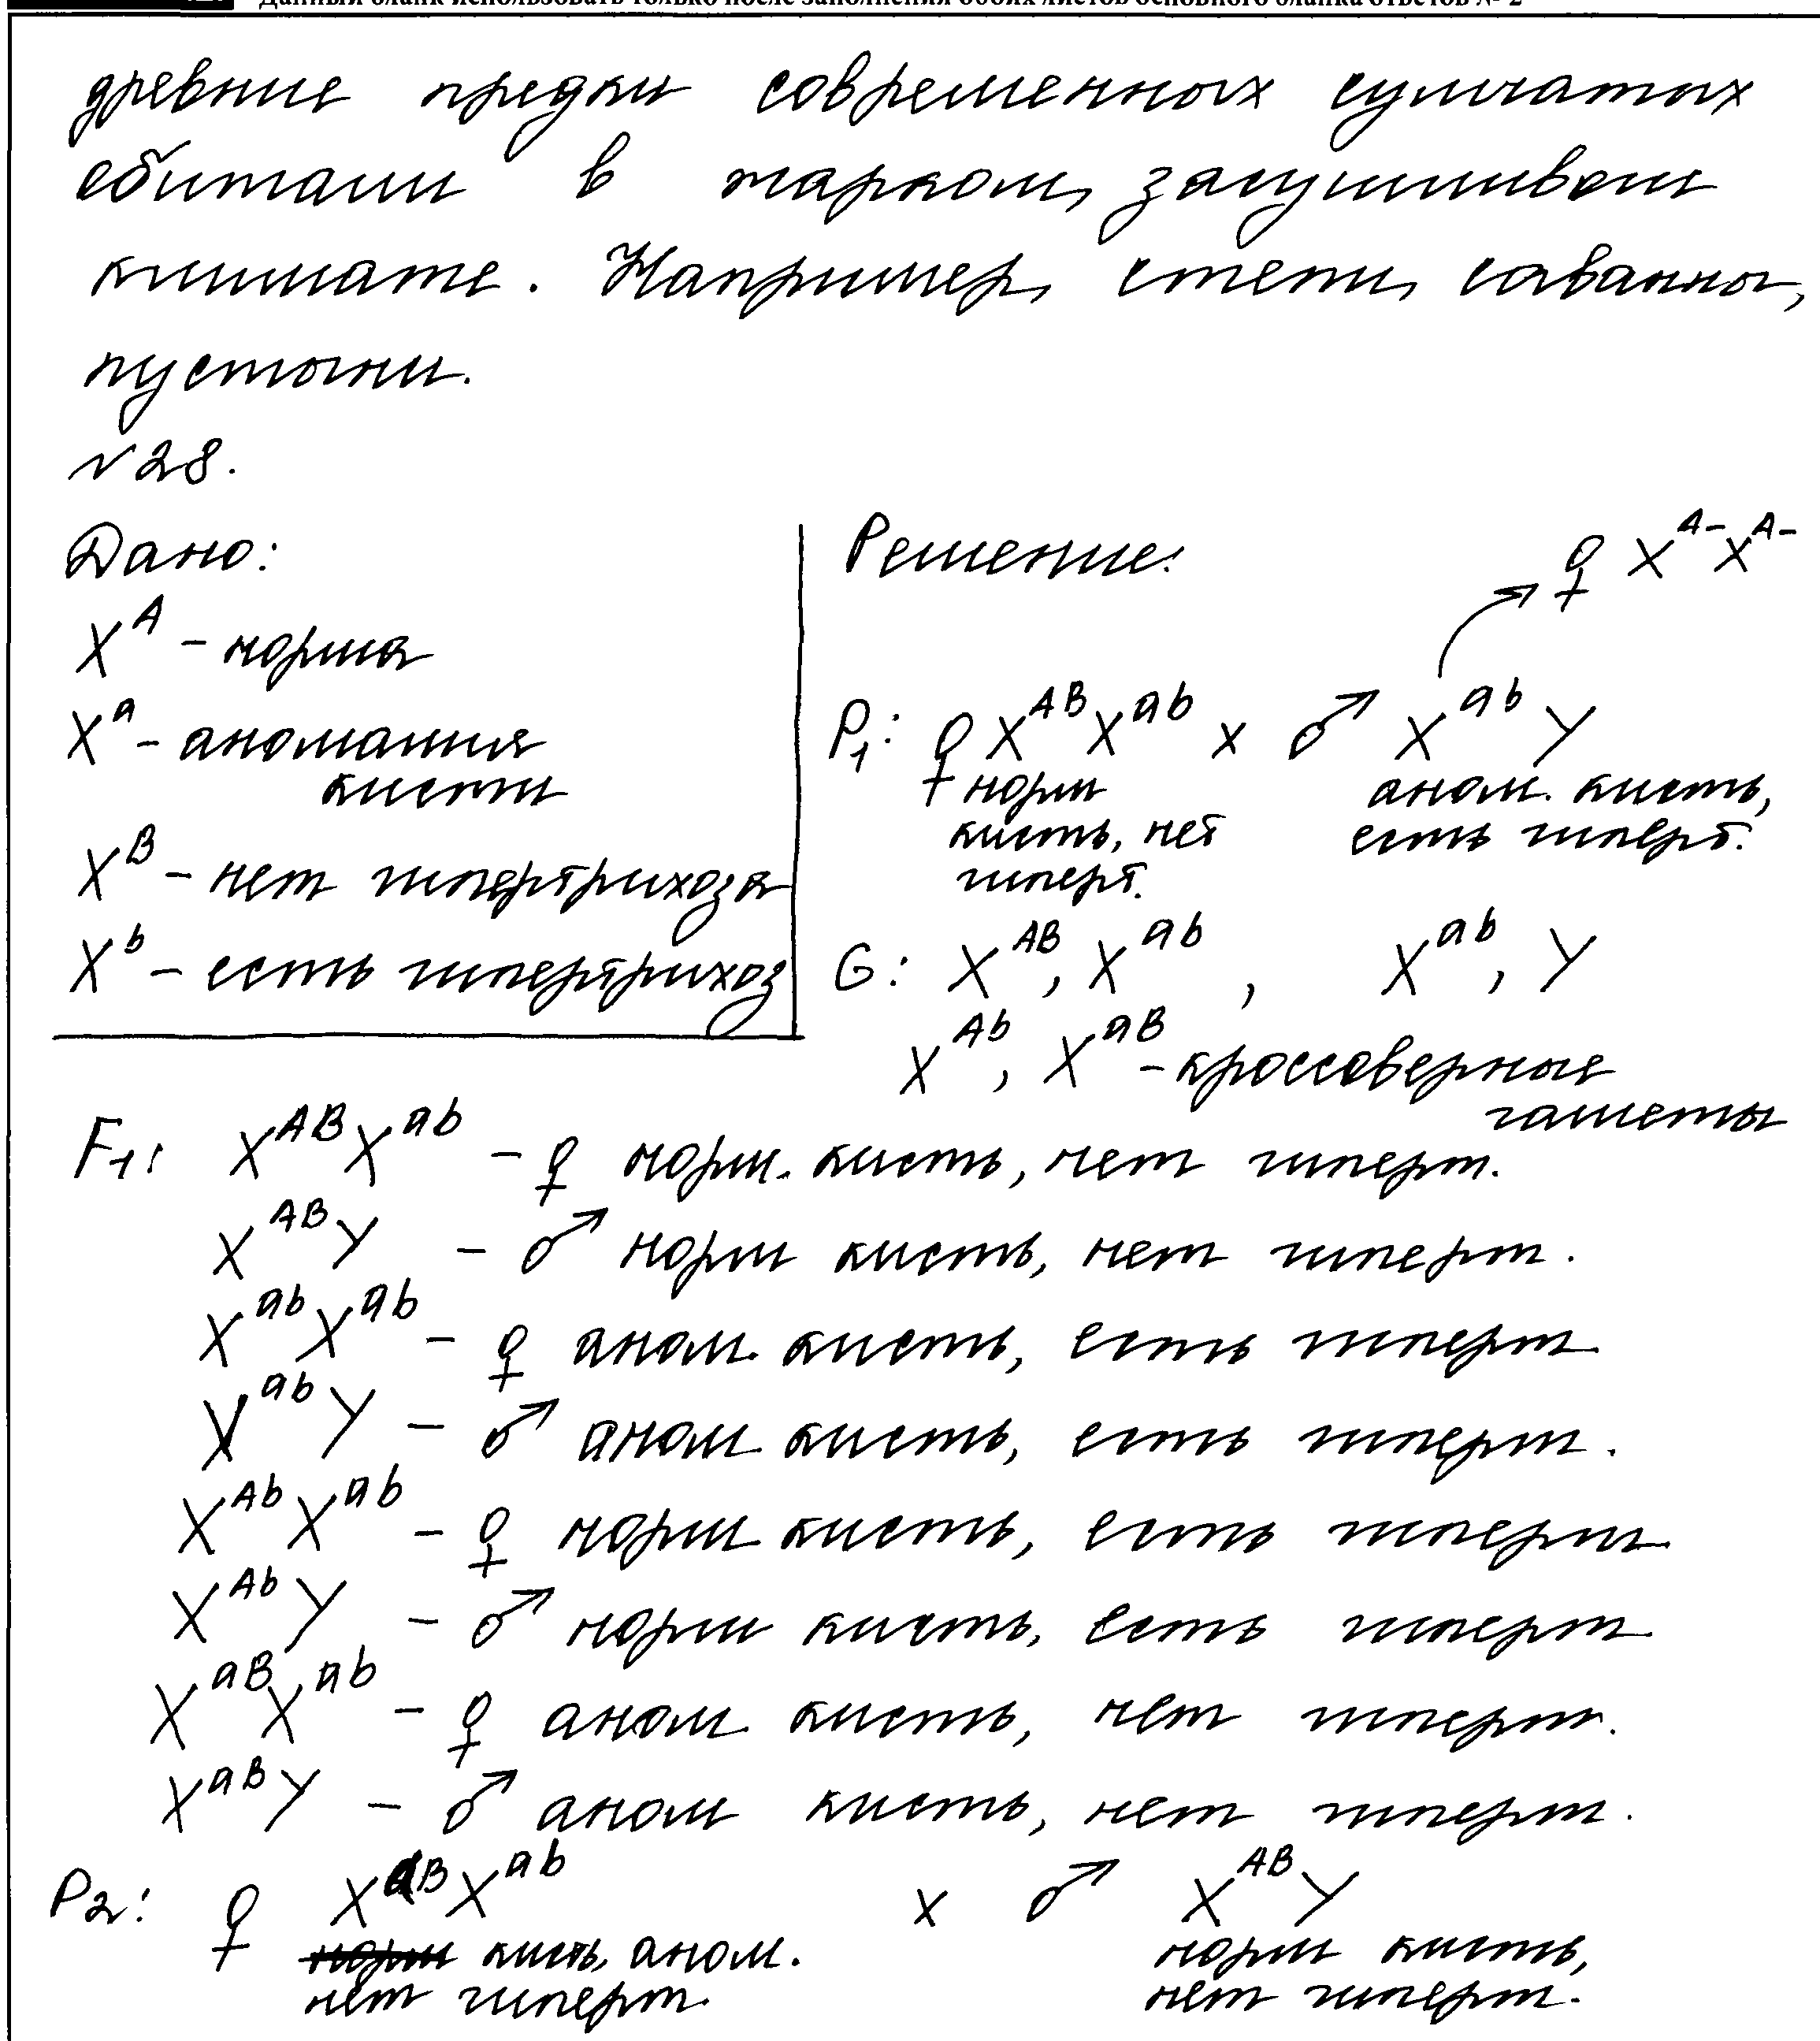 Данный бланк использовать только после заполнения обоих листов основного бланка ответов № 2
древние предки современных сумчатых
обитали в жарком, засушливом
климате. Например, степи, саванны,
пустыни.
№28.
Дано:
X^A - норма
X^a - аномалия
кисти
X^B - нет гипертрихоза
X^b - есть гипертрихоз
Решение:
♀ X^A- X^A-
P1: ♀ X^AB X^ab x ♂ X^ab Y
норм аном. кисть,
кисть, нет есть гиперт.
гиперт.
G: X^AB, X^ab, X^ab, Y
X^Ab, X^aB - кроссоверные
гаметы
F1: X^AB X^ab - ♀ норм. кисть, нет гиперт.
X^AB Y - ♂ норм кисть, нет гиперт.
X^ab X^ab - ♀ аном. кисть, есть гиперт
X^ab Y - ♂ аном кисть, есть гиперт.
X^Ab X^ab - ♀ норм кисть, есть гиперт
X^Ab Y - ♂ норм кисть, есть гиперт
X^aB X^ab - ♀ аном кисть, нет гиперт.
X^aB Y - ♂ аном кисть, нет гиперт.
P2: ♀ X^aB X^ab x ♂ X^AB Y
норм кисть, аном. норм кисть,
нет гиперт. нет гиперт.